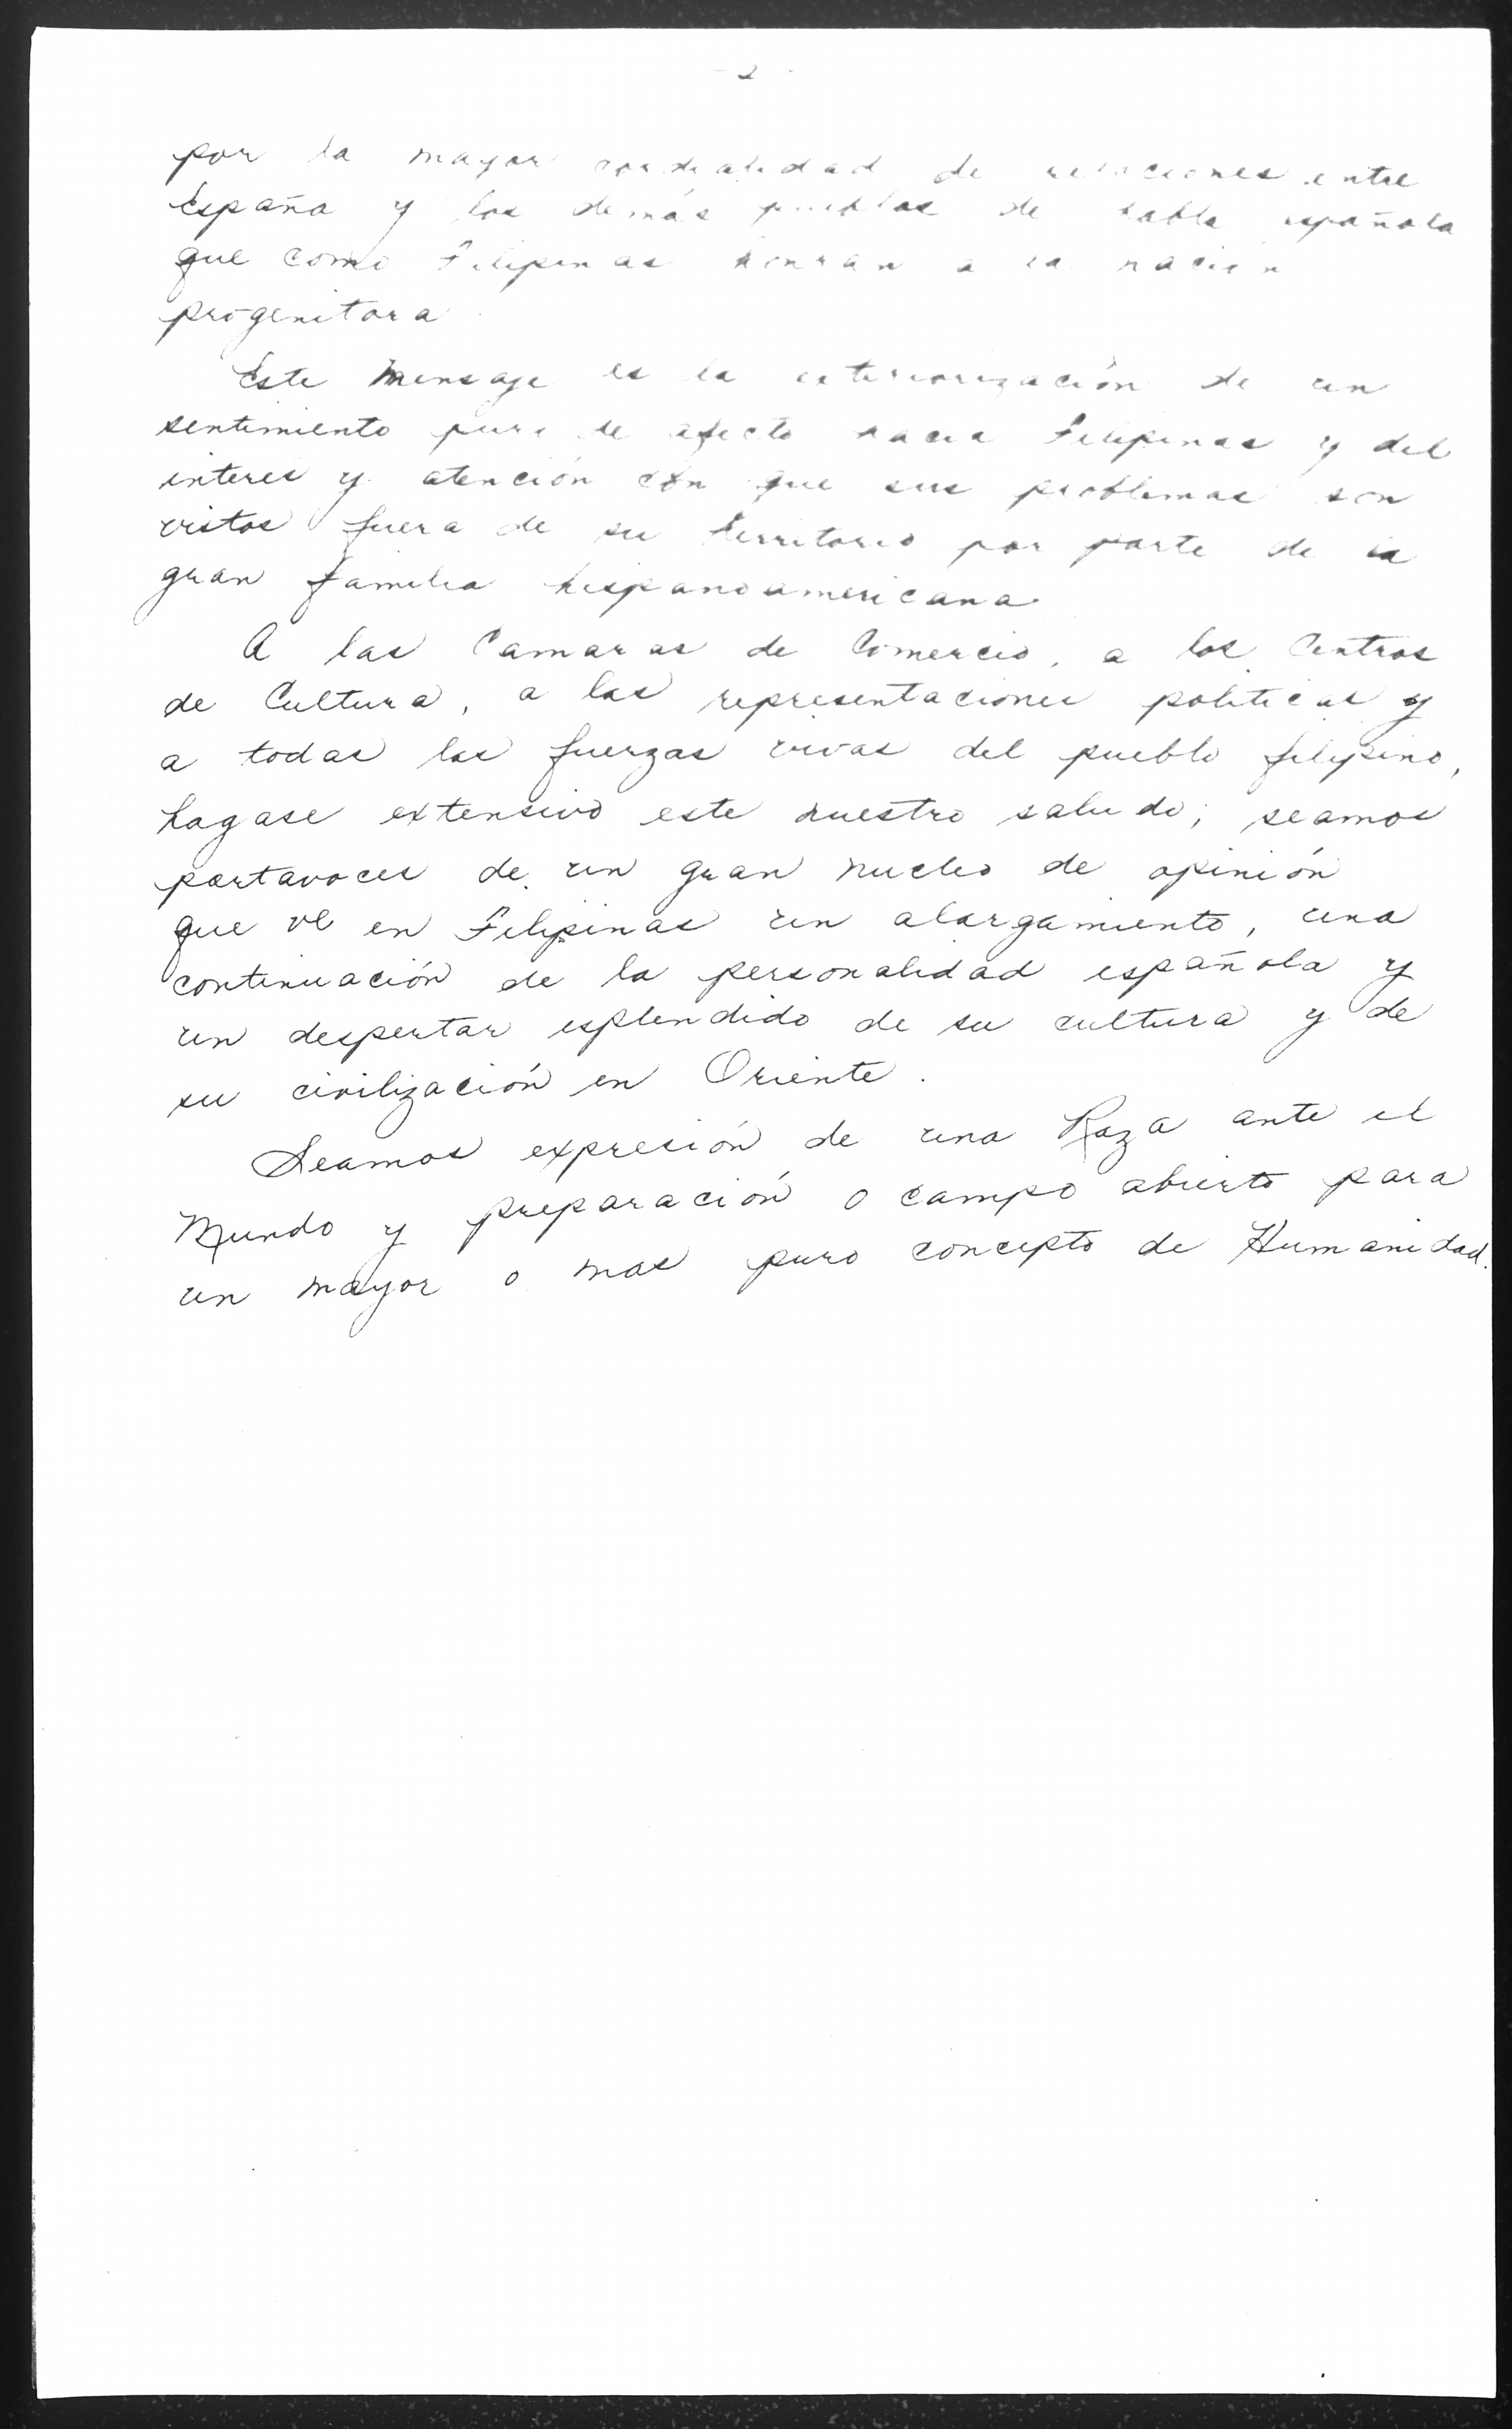 - 2 -
por la mayor cordialidad de relaciones entre
España y los demás pueblos de habla española
que como Filipinas honran a la nación
progenitora
Este mensaje es la exteriorización de un
sentimiento puro de afecto hacia Filipinas y del
interes y atención con que sus problemas son
vistos fuera de su territorio por parte de la
gran familia hispanoamericana
A las Camaras de Comercio, a los Centros
de Cultura, a las representaciones politicas y
a todas las fuerzas vivas del pueblo filipino,
hagase extensivo este nuestro saludo; seamos
portavoces de un gran nucleo de opinión
que ve en Filipinas un alargamiento, una
continuación de la personalidad española y
un despertar esplendido de su cultura y de
su civilización en Oriente.
Seamos expresión de una Raza ante el
Mundo y preparación o campo abierto para
un mayor o mas puro concepto de Humanidad.